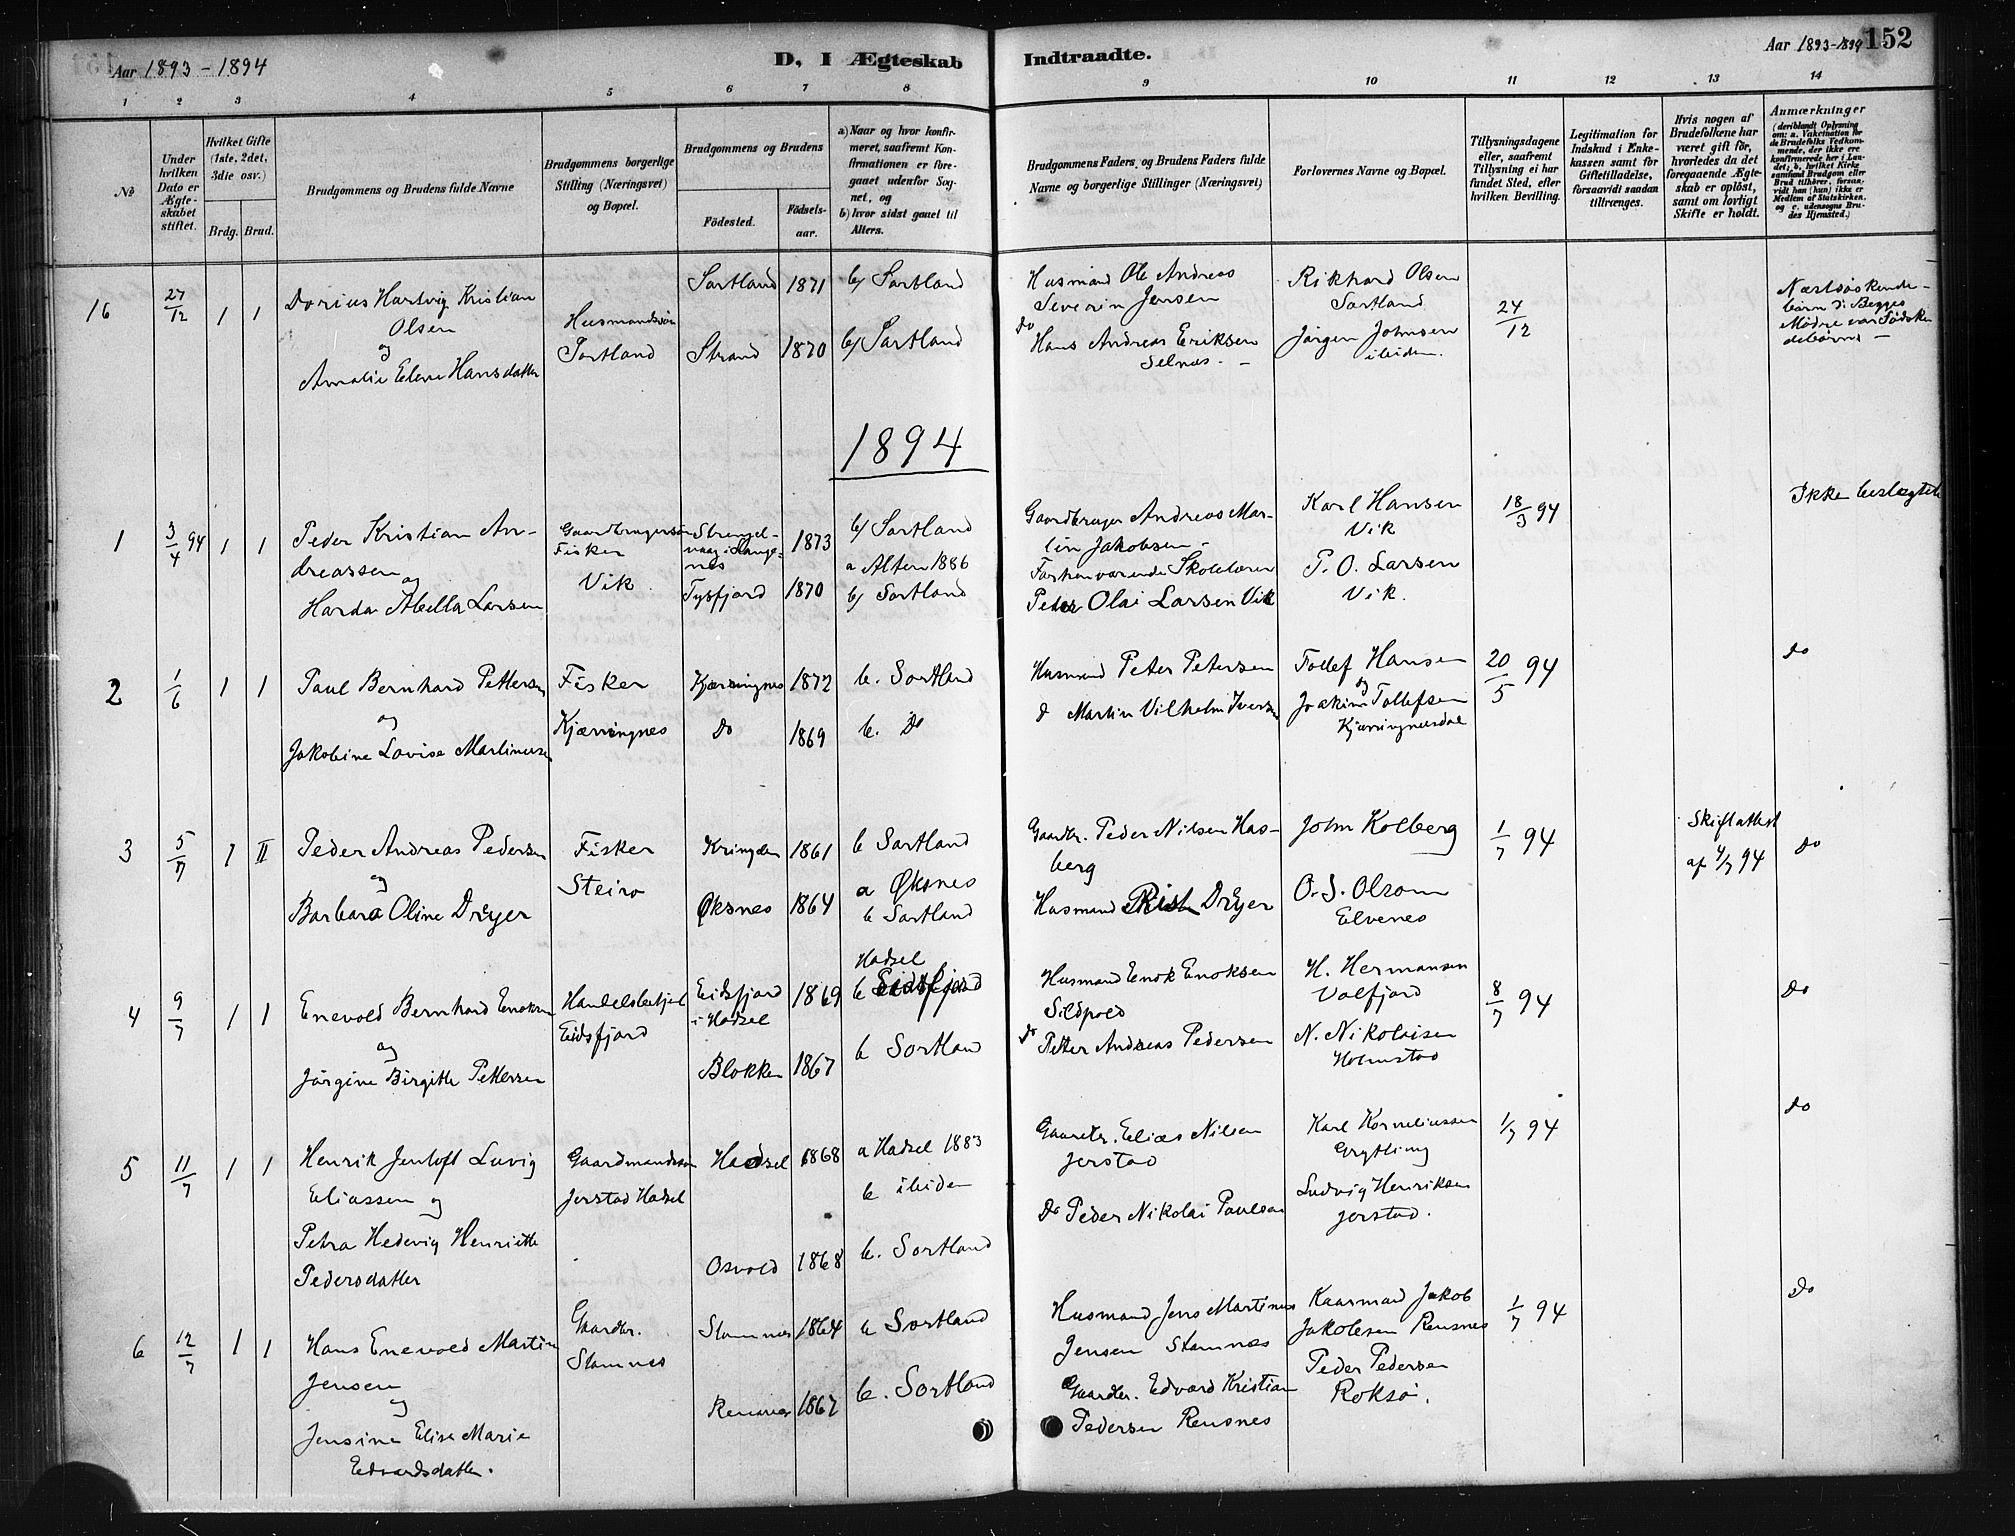 Aar 1893-1894
D, I Ægteskab Indtraadte.
Aar 1893-1894 152
1 2 3 4 5 6 7 8 9 10 11 12 13 14
No
Under hvilken Dato er Ægteskabet stiftet.
Hvilket Gifte (1ste, 2det, 3die osv.)
Brdg. Brud.
Brudgommens og Brudens fulde Navne
Brudgommens borgerlige Stilling (Næringsvei) og Bopæl.
Brudgommens og Brudens
Fødested.
Fødsels-aar.
a) Naar og hvor konfirmeret, saafremt Konfirmationen er foregaaet udenfor Sognet, og
b) hvor sidst gaaet til Alters.
Brudgommens Faders, og Brudens Faders fulde Navne og borgerlige Stillinger (Næringsvei)
Forlovernes Navne og Bopæl.
Tillysningsdagene eller, saafremt Tillysning ei har fundet Sted, efter hvilken Bevilling.
Legitimation for Indskud i Enkekassen samt for Giftetilladelse, forsaavidt saadan tiltrænges.
Hvis nogen af Brudefolkene har været gift før, hvorledes da det foregaaende Ægteskab er opløst, samt om lovligt Skifte er holdt.
Anmærkninger (deriblandt Oplysning om: a. Vakcination for de Brudefolks Vedkommende, der ikke ere konfirmerede her i Landet; b. hvilket Kirkesamfund Brudgom eller Brud tilhører, forsaavidt han (hun) ikke er Medlem af Statskirken, og c. udensogns Brudes Hjemsted.)
16 27/12 1 1
Dorius Hartvig Kristian
Olsen
og
Amalie Elene Hansdatter
Husmandssøn
Sortland
Sortland 1871 b/ Sortland
Strand 1870 b/ Sortland
Husmand Ole Andreas
Severin Jensen
do Hans Andreas Eriksen
Selnæs
Rikhard Olsen
Sortland
Jørgen Johnsen
ibiden.
24/12
Næstsøskende-
børn d: Begges
Mødre var Sødsken
debørns
1894
1 3/4 94 1 1
Peder Kristian An-
dreassen
og
Harda Abella Larsen
Gaardbrugersøn
Fisker
Vik
Strengel-
vaag i Lange-
nes 1873 b/ Sortland
Tysfjord 1870
a Alten 1886
b/ Sortland
Gaardbruger Andreas Mar-
tin Jakobsen
Forhenværende Skolelærer
Peter Olai Larsen Vik
Karl Hansen
Vik
P. O. Larsen
Vik.
18/3 94
Ikke beslægtede
2 1/6 1 1
Paul Bernhard Pettersen
og
Jakobine Lovise Martinussen
Fisker
Kjærringnes
Kjærringnes 1872 b. Sortland
do 1869 b. do
Husmand Peter Petersen
d Martin Vilhelm Iversen
Tollef Hansen
og
Joakim Tollefsen
Kjærringnesdal
20/5 94
do
3 5/7 1 II
Peder Andreas Pedersen
og
Barbara Oline Dreyer
Fisker
Steiro
Kringlen 1861 b Sortland
Øksnes 1864
a Øksnes
b Sortland
Gaardbr. Peder Nilsen Has-
berg
Husmand Rist Dreyer
John Kolberg
O. S. Olsom
Elvenes
1/7 94
Skiftattest
af 4/7 94
do
4 9/7 1 1
Enevold Bernhard Enoksen
og
Jørgine Birgitte Pettersen
Handelsbetjent
Eidsfjord
Eidsfjord
i Hadsel 1869
Hadsel
b Eidsfjord
Blokken 1867 b Sortlan
Husmand Enok Enoksen
Sildpold
do Petter Andreas Pedersen
H. Hermansen
Valfjord
N. Nikolaisen
Holmstad
8/7 94
do
5 11/7 1 1
Henrik Jentoft Luvig
Eliassen og
Petra Hedevig Henriette
Pedersdatter
Gaardmandssøn
Jerstad Hadsel
Hadsel 1868 a Hadsel 1883
b ibiden
Osvold 1868 b. Sortland
Gaardbr. Elias Nilsen
Jerstad
do Peder Nikolai Paulsen
Karl Korneliussen
Grytting
Ludvig Henriksen
Jerstad.
1/7 94
do
6 12/7 1 1
Hans Enevold Martin
Jensen
og
Jensine Elise Marie
Edvardsdatter.
Gaardbr.
Stamnes
Stamnes 1864 b Sortland
Rensnes 1867 b. Sortland
Husmand Jens Martinus
Jensen Stamnæs
Gaardbr. Edvard Kristian
Pedersen Rensnes
Kaarmad Jakob
Jakobsen Rensnes
Peder Pedersen
Roksø.
1/7 94
do